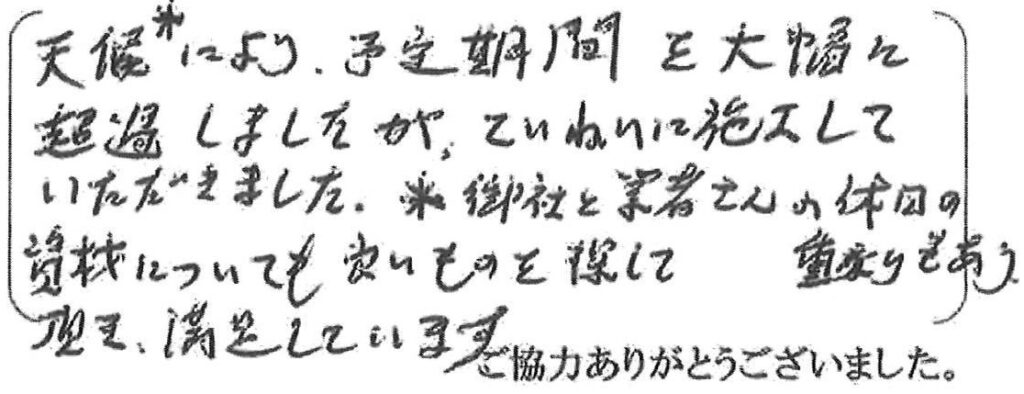 天候※により、予定期間を大幅に
超過しましたが、ていねいに施工して
いただきました。※御社と業者さんの休日の
重なりもあり
資材についても良いものを探して
頂き、満足しています
ご協力ありがとうございました。